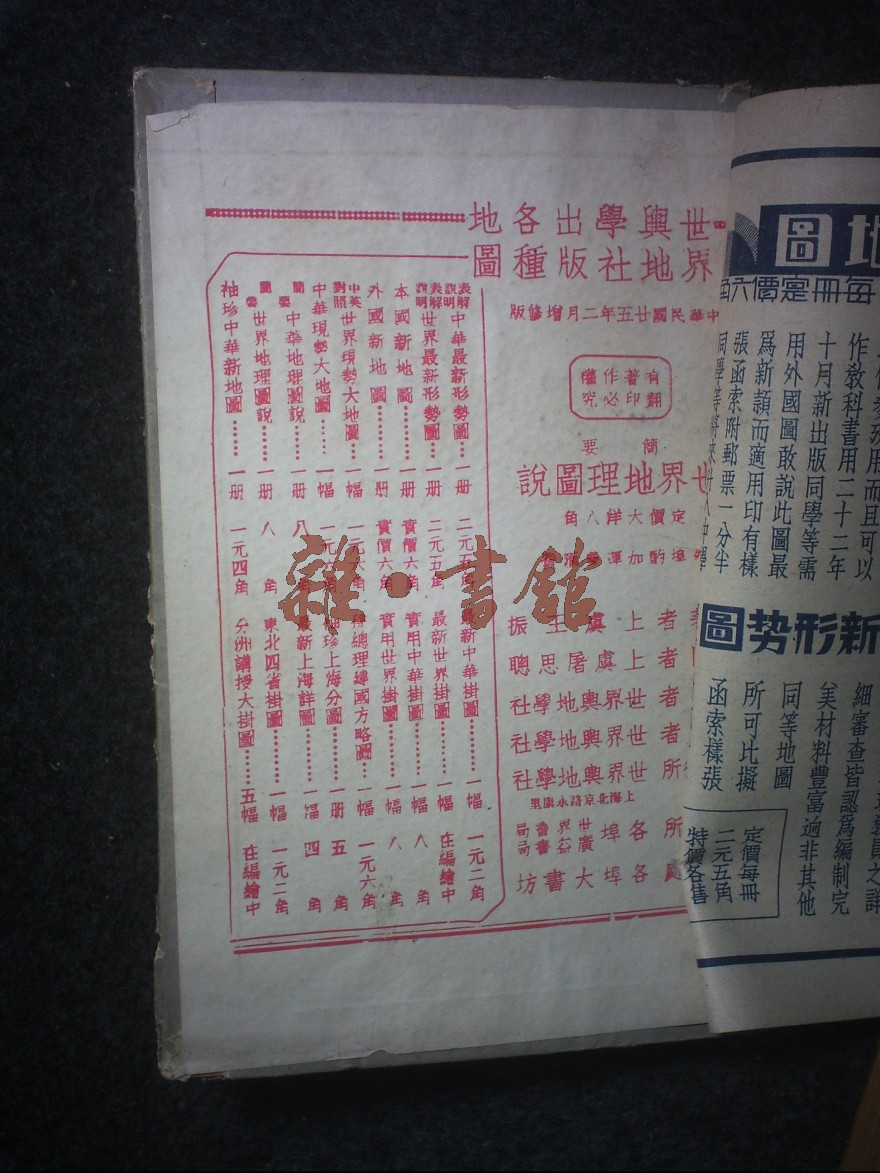 世界輿地學社出版各種地圖
中華民國廿五年二月增修版
有著作權
翻印必究
簡要
世界地理圖說
定價大洋八角
埠酌加運
者 上虞 王 振
者 上虞屠思聰
者 世界輿地學社
者 世界輿地學社
所 世界輿地學社
上海北京路永康里
所 各埠 世界書局 廣益書局
處 各埠大書坊
表解說明中華最新形勢圖……一册 二元五角
表解說明世界最新形勢圖……一册 二元五角
本國新地圖……一册 實價六角
外國新地圖……一册 實價六角
中英對照世界現勢大地圖……一幅 一元六角
中華現勢大地圖……一幅 一元六角
簡要中華地理圖說……一册 八角
簡要世界地理圖說……一册 八角
袖珍中華新地圖……一册 一元四角
最新中華掛圖……一幅 一元二角
最新世界掛圖……一幅 在編繪中
實用中華掛圖……一幅 八角
實用世界掛圖……一幅 八角
總理建國方略圖…一幅 一元六角
袖珍上海分圖……一册 五角
最新上海詳圖……一幅 四角
東北四省掛圖……一幅 一元二角
分洲講授大掛圖……五幅 在編繪中
雜·書館
地圖
每冊定價六角
作教科書用二十二年
十月新出版同學等需
用外國圖敢說此圖最
為新穎而適用印有樣
張函索附郵票一分半
新形势圖
細審查皆認爲編制完
美材料豐富過非其他
同等地圖
所可比擬
函索樣張
定價每冊
二元五角
特價另售